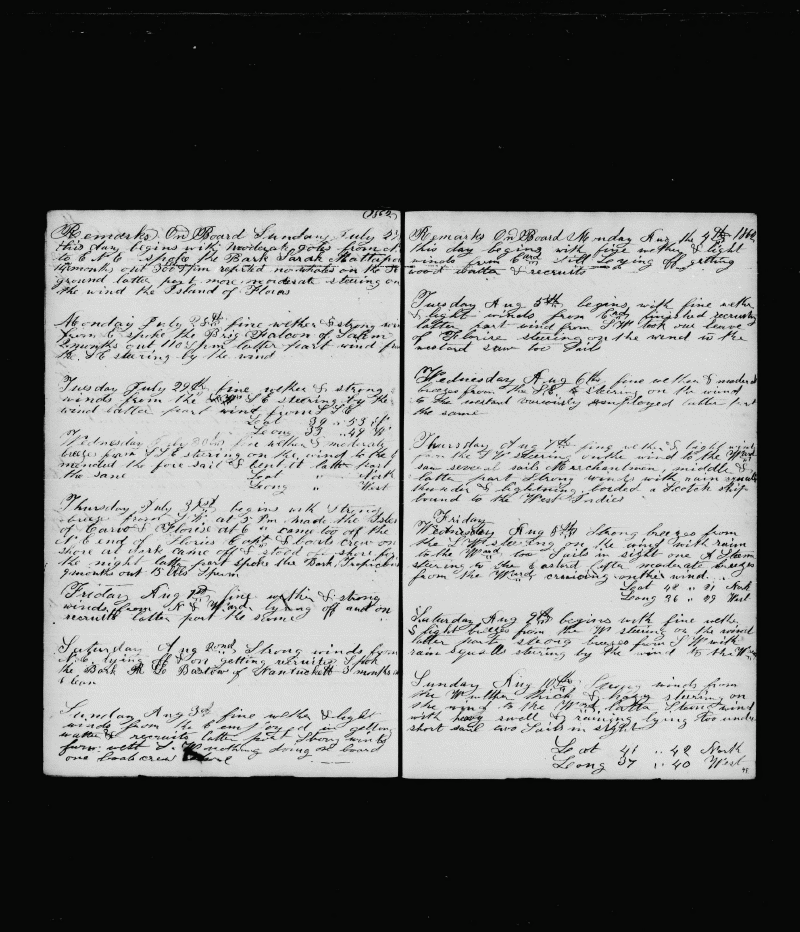 (1862)
Remarks On Board Sunday July 27
this day begins with moderate gales from
to E N E spoke the Bark Sarah Mattapoi
months out 300 Spm reported no whales on the
ground latter part more moderate steering on
the wind the Island of Flores
Monday July 28th fine wether & strong wi
from E spoke the Brig Falcon of Salem
months out 110 Spm latter part wind from
the S E stearing by the wind
Tuesday July 29th fine wether & strong
winds from the S E steering by the
wind latter part wind from S S E
Leat 39 " 53 N
Leong 33 " 49 W
Wednesday July 30th fine wether & moderate
breeze from S S E steering on the wind to the
mended the fore sail & bent it latter part
the same Leat " North
Leong " West
Thursday July 31st begins with strong
breeze from at 5 Pm made the Isles
of Carvo & Flores at 6 " came too off the
N E end of Flores Capt & boats crew on
shore at dark came off & stood off shore for
the night latter part spoke the Bark Tropic
9 months out 15 bbls Sperm
Friday Aug 1st fine wether & strong
winds from N & Ward lying off and on
recruits latter part the same
Saturday Aug 2nd Strong winds from
N E lying off & on getting recruits Spok
the Bark of Nantuckett 3 months
Clean
Sunday Aug 3d fine wether & light
winds from the E employed in getting
watter & recruits latter part Strong winds
from with nothing doing on board
one boats crew
Remarks On Board Monday Aug the 4th 1862
this day begins with fine wether & light
winds from Eard Still Laying off getting
wood watter & recruits
Tuesday Aug 5th begins with fine wether
& light winds from Eard finished recruiting
latter part wind from S W took our leave
of Florise steering on the wind to the
westard saw too Sails
Wednesday Aug 6th fine wether & moderat
breezes from the S E & Stearing on the wind
to the westard variously employed latter part
the same
Thursday Aug 7th fine wether & light winds
from the S W steering on the wind to the Ward
saw several sails Merchantmen, middle &
latter part Strong winds with rain squalls
thunder & lightning borded a Scotch ship
bound to the West Indies
Friday
Wednesday Aug 8th Strong breezes from
the S W steering on the wind with rain
to the Ward too Sails in sight one A Steam
stering to the Eastard latter moderate breezes
from the Ward cruising on the wind
Leat 42 " 21 North
Leong 36 " 29 West
Saturday Aug 9th begins with fine wether
& light breezes from the W steering on the wind
latter part strong breezes from S W with
rain squalls stearing by the wind to the W
Sunday Aug 10th strong winds from
the W wether thick & foggy stearing on
the wind to the Ward latter S wind
with heavy swell & raining lying too under
short sail too Sails in sight
Leat 41 " 42 North
Leong 37 " 40 West